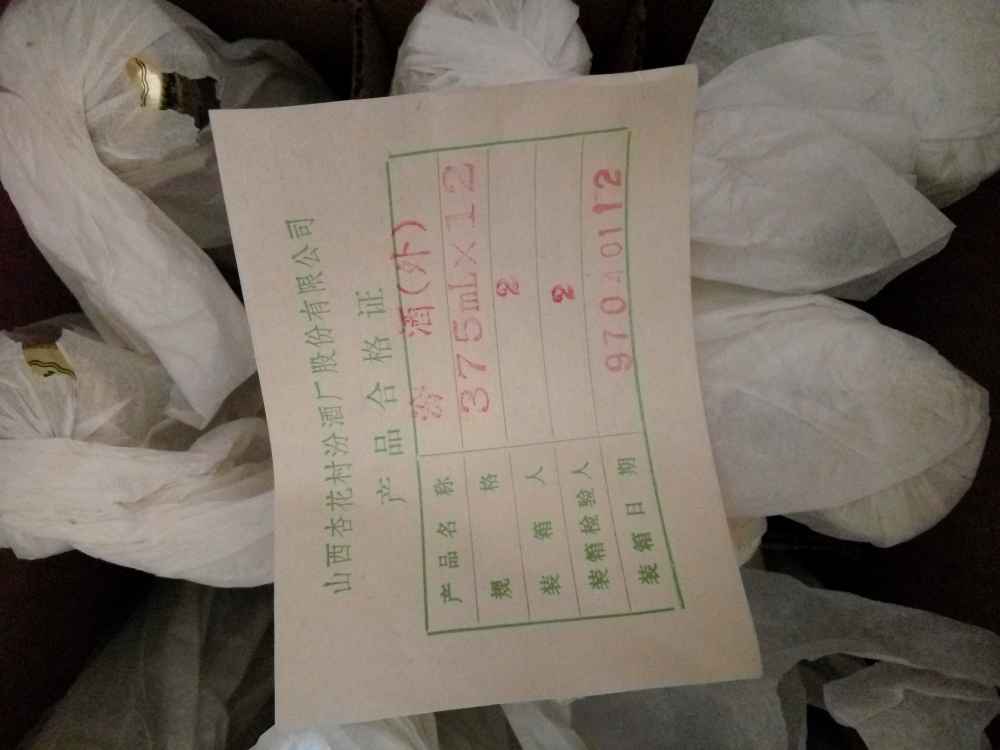 山西杏花村汾酒厂股份有限公司
产品合格证
产品名称 汾 酒(外)
规格 375mL×12
装箱人 2
装箱检验人 2
装箱日期 970440112